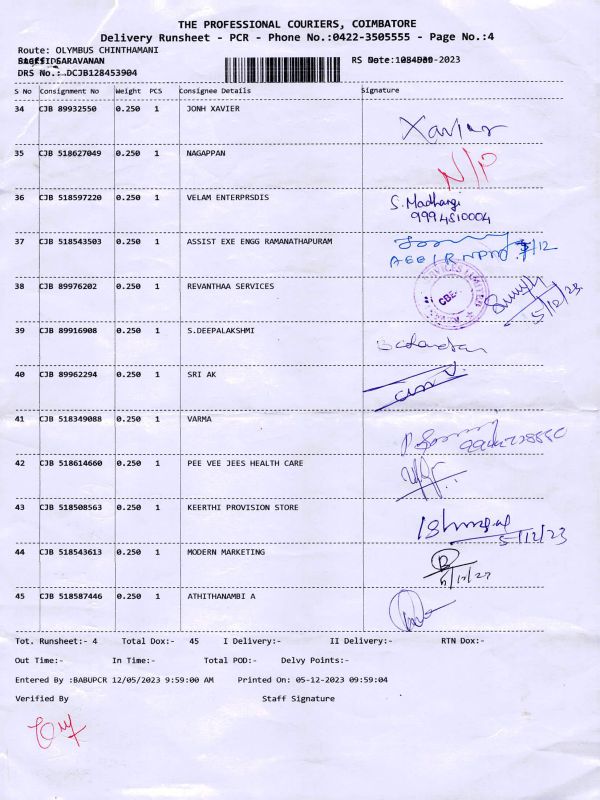 THE PROFESSIONAL COURIERS, COIMBATORE
Delivery Runsheet - PCR - Phone No.:0422-3505555 - Page No.:4
Route: OLYMBUS CHINTHAMANI
SARAVANAN RS 2023
DRS No.:.DCJB128453904
S No Consignment No Weight PCS Consignee Details Signature
34 CJB 89932550 0.250 1 JONH XAVIER Xavier
35 CJB 518627049 0.250 1 NAGAPPAN N/P
36 CJB 518597220 0.250 1 VELAM ENTERPRSDIS S. Madhangi
9994810004
37 CJB 518543503 0.250 1 ASSIST EXE ENGG RAMANATHAPURAM
38 CJB 89976202 0.250 1 REVANTHAA SERVICES CBE 5/12/23
39 CJB 89916908 0.250 1 S.DEEPALAKSHMI
40 CJB 89962294 0.250 1 SRI AK
41 CJB 518349088 0.250 1 VARMA
42 CJB 518614660 0.250 1 PEE VEE JEES HEALTH CARE
43 CJB 518508563 0.250 1 KEERTHI PROVISION STORE 5/12/23
44 CJB 518543613 0.250 1 MODERN MARKETING
45 CJB 518587446 0.250 1 ATHITHANAMBI A
Tot. Runsheet:- 4 Total Dox:- 45 I Delivery:- II Delivery:- RTN Dox:-
Out Time:- In Time:- Total POD:- Delvy Points:-
Entered By :BABUPCR 12/05/2023 9:59:00 AM Printed On: 05-12-2023 09:59:04
Verified By Staff Signature